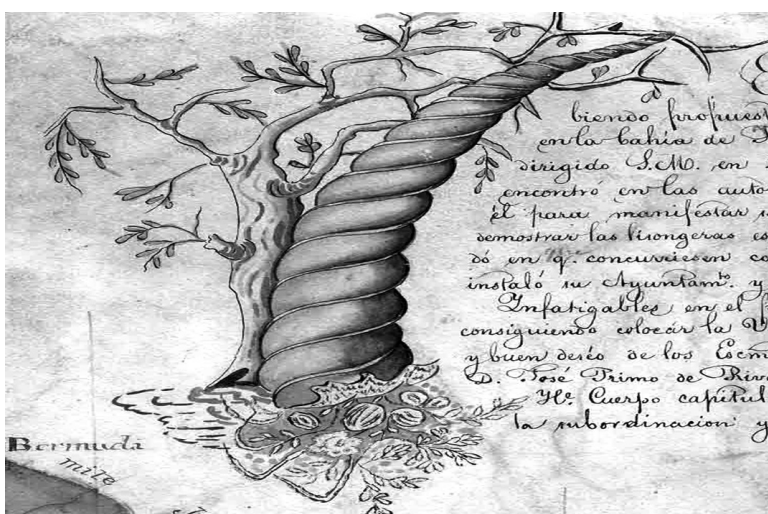 biendo propuest
en la bahía de
dirigido S.M. en
encontró en las auto
él para manifestar
demostrar las lisongeras es
dó en q.e concurriesen co
instaló su Ayuntam.to y
Infatigables en el
consiguiendo colocar la
y buen deséo de los Escm
D. José Primo de Riv
Ye. Cuerpo capitul
la subordinacion y
Bermuda
mile